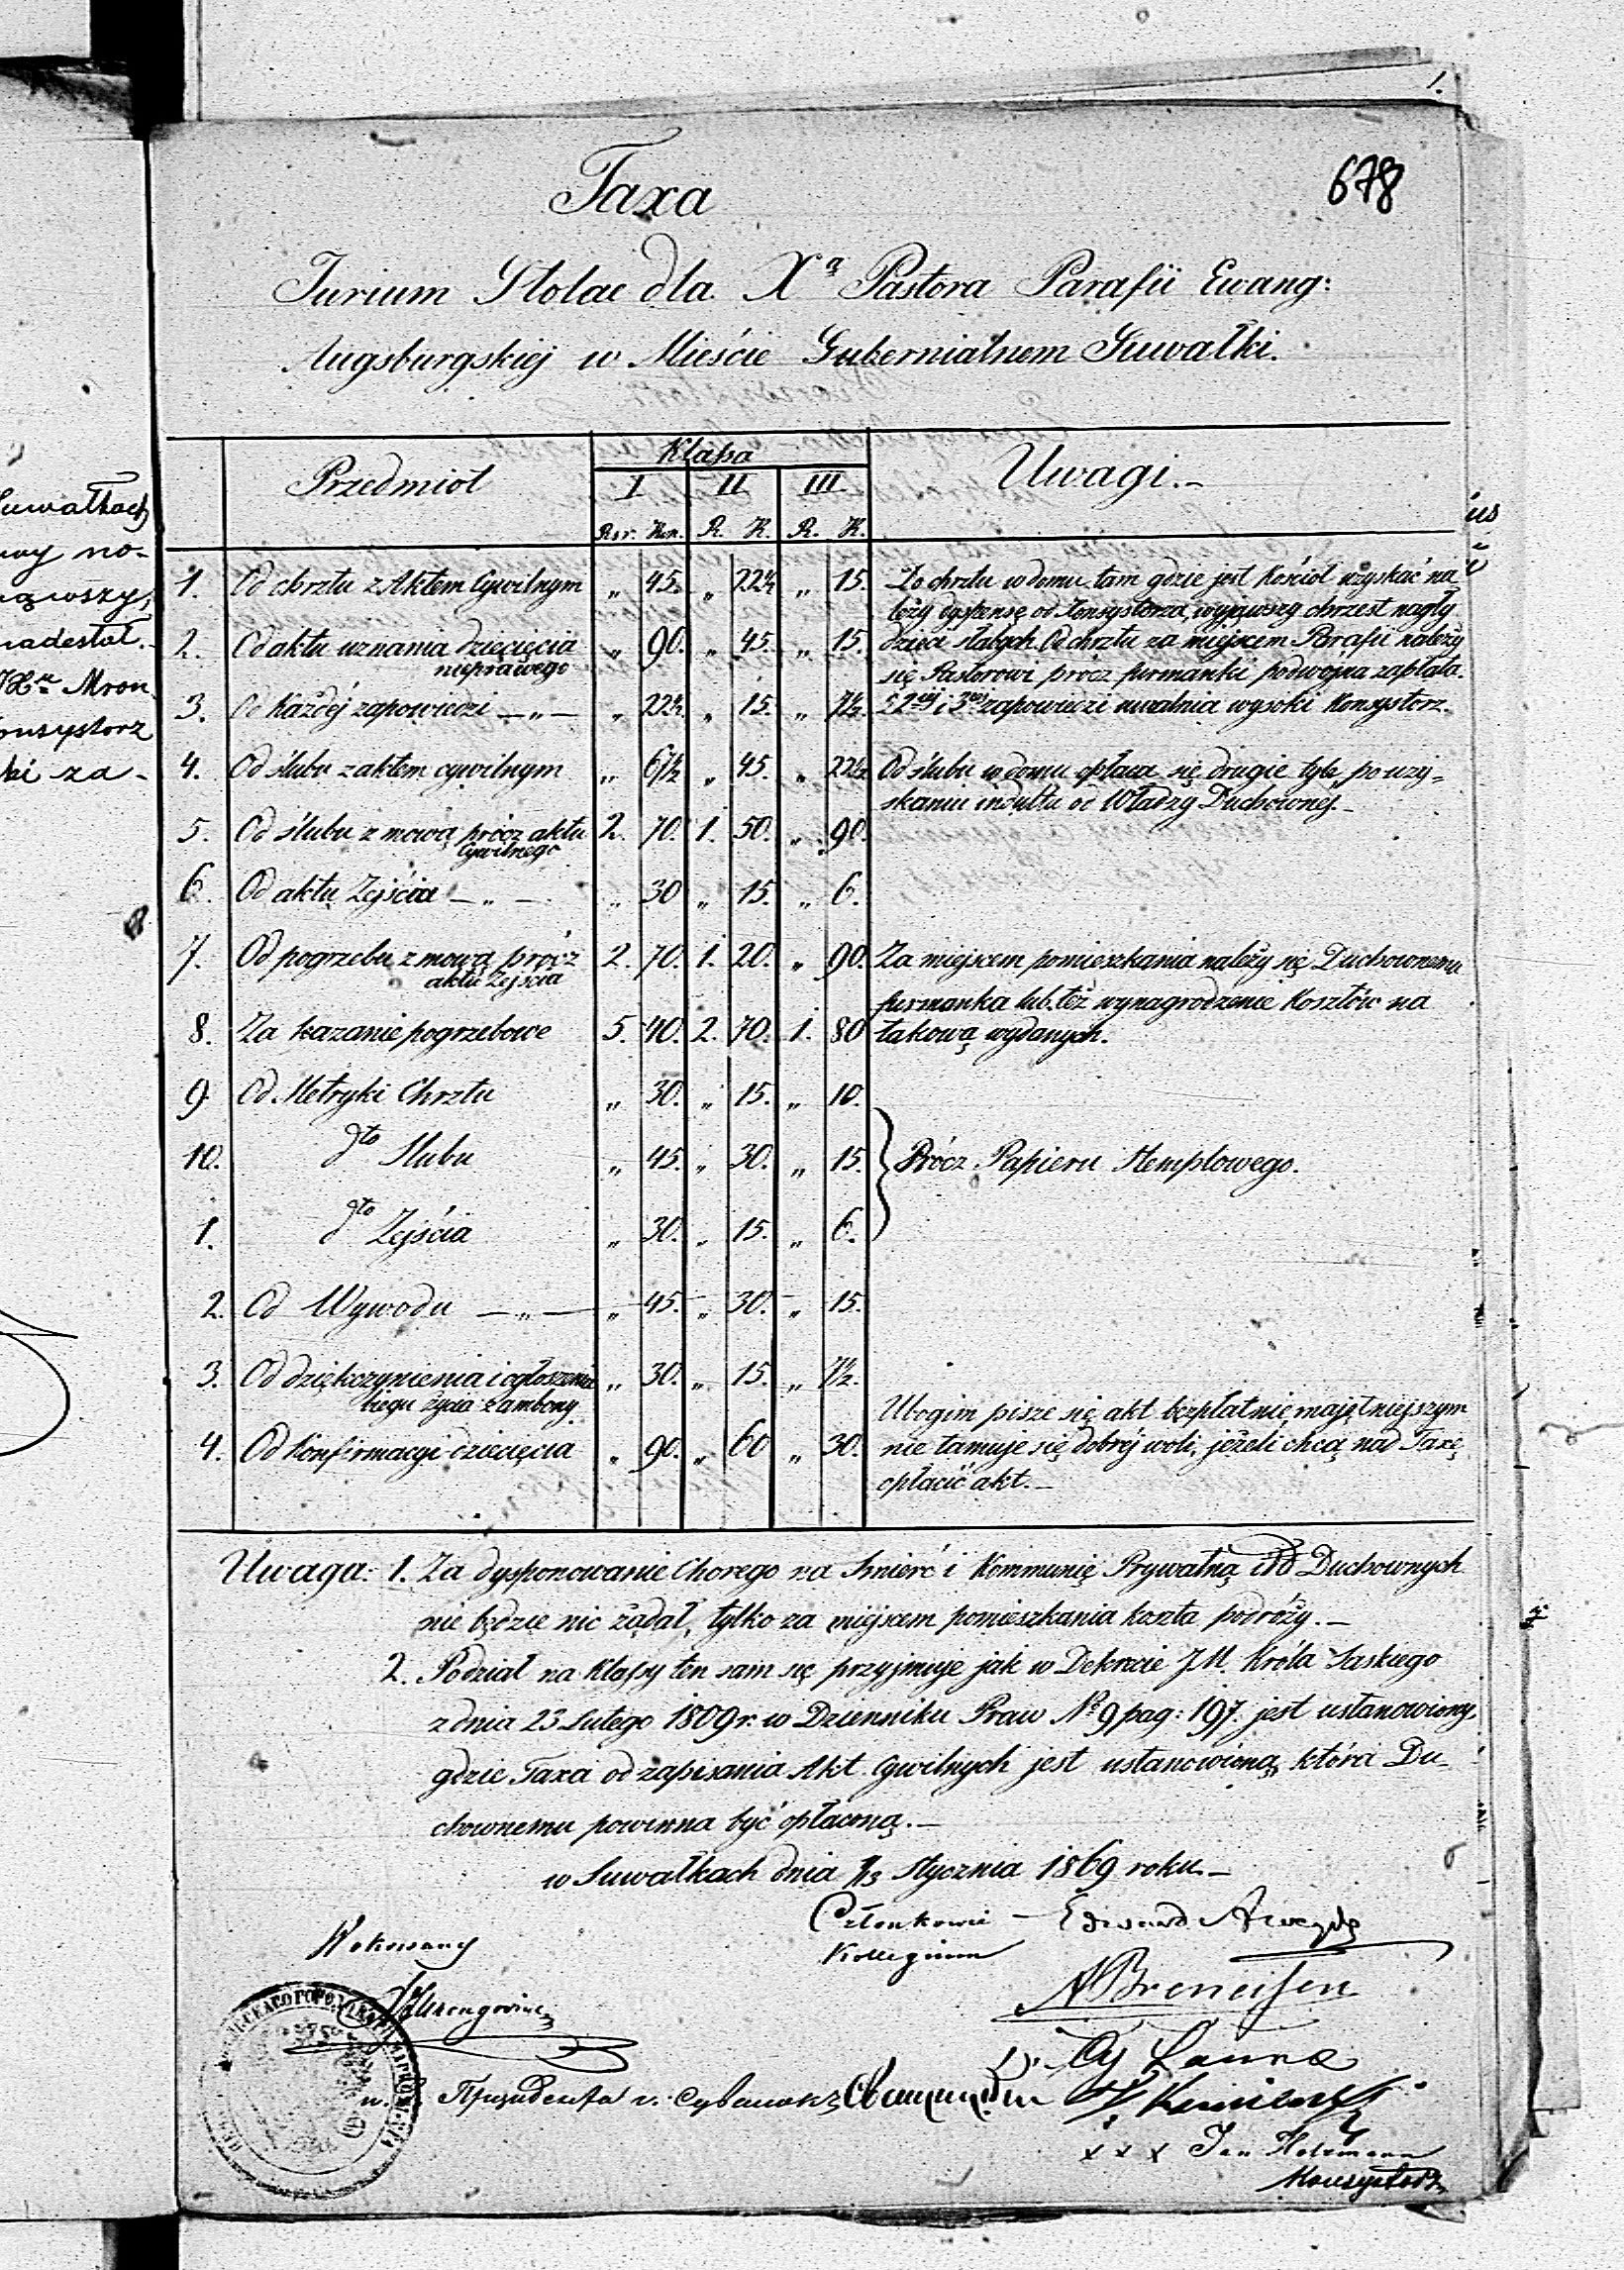 1.
678
Taxa
Jurium Stolae dla Xa Pastora Parafii Ewang:
Augsburgskiéj w Mieście Gubernialnem Suwałki.
Przedmiot
Klassa
Uwagi.-
I. II. III.
Rsr. Kop. R. K. R. K.
1. Od chrztu z Aktem Cywilnym „ 45. „ 22½ „ 15.
Do chrztu w domu tam gdzie jest Kościół uzyskać na
leży dyspensę od Konsystorza, wyjąwszy chrzest nagły
2. Od aktu uznania dziecięcia „ 90. „ 45. „ 15.
nieprawego
dzieci słabych. Od chrztu za miejscem Parafii należy
się Pastorowi prócz furmanki podwójna zapłata.
3. Od Każdéj zapowiedzi — „ — „ 22½ „ 15. „ 7½.
Z 2éj i 3éj zapowiedzi uwalnia wysoki Konsystorz.
4. Od ślubu z aktem cywilnym „ 67½ „ 45. „ 22½
Od ślubu w domu opłaca się drugie tyle po uzy=
skaniu indultu od Władzy Duchownéj.-
5. Od ślubu z mową prócz aktu 2. 70. 1. 50. „ 90.
Cywilnego
6. Od aktu Zejścia — „ — „ 30 „ 15. „ 6.
7. Od pogrzebu z mową prócz 2. 70. 1. 20. „ 90.
aktu Zejścia
Za miejscem pomieszkania należy się Duchownemu
furmanka lub téż wynagrodzenie Kosztów na
takową wydanych.
8. Za kazanie pogrzebowe 5. 40. 2. 70. 1. 80
9. Od Metryki Chrztu „ 30. „ 15. „ 10.
10. dto Ślubu „ 45. „ 30. „ 15.
Prócz Papieru Stemplowego.
1. dto Zejścia „ 30. „ 15. „ 6.
2. Od Wywodu — „ — „ 45. „ 30. „ 15.
3. Od dziękczynienia i ogłoszenia „ 30. „ 15. „ 7½.
biegu życia z ambony.
4. Od Konfirmacyi dziecięcia „ 90. „ 60 „ 30.
Ubogim pisze się akt bezpłatnie, majętniejszym
nie tamuje się dobréj woli, jeżeli chcą nad Taxę
opłacić akt.-
Uwaga: 1. Za dysponowanie Chorego na Śmierć i Kommunię Prywatną Duchownych
nie będzie nic żądał, tylko za miejscem pomieszkania koszta podróży.-
2. Podział na Klassy ten sam się przyjmuje jak w Dekrecie J.M. Króla Saskiego
z dnia 23 Lutego 1809 r. w Dzienniku Praw No 9 pag: 197. jest ustanowiony
gdzie Taxa od zapisania Akt Cywilnych jest ustanowioną, która Du-
chownemu powinna być opłaconą.-
w Suwałkach dnia 1/13 Stycznia 1869 roku.-
Członkowie — Edward
Kollegium
A Breneisen
x x x Jan Holzmann
Suwałkach
wy no-
ąwszy,
nadesłał.
Mron
onsystorz
ki za-